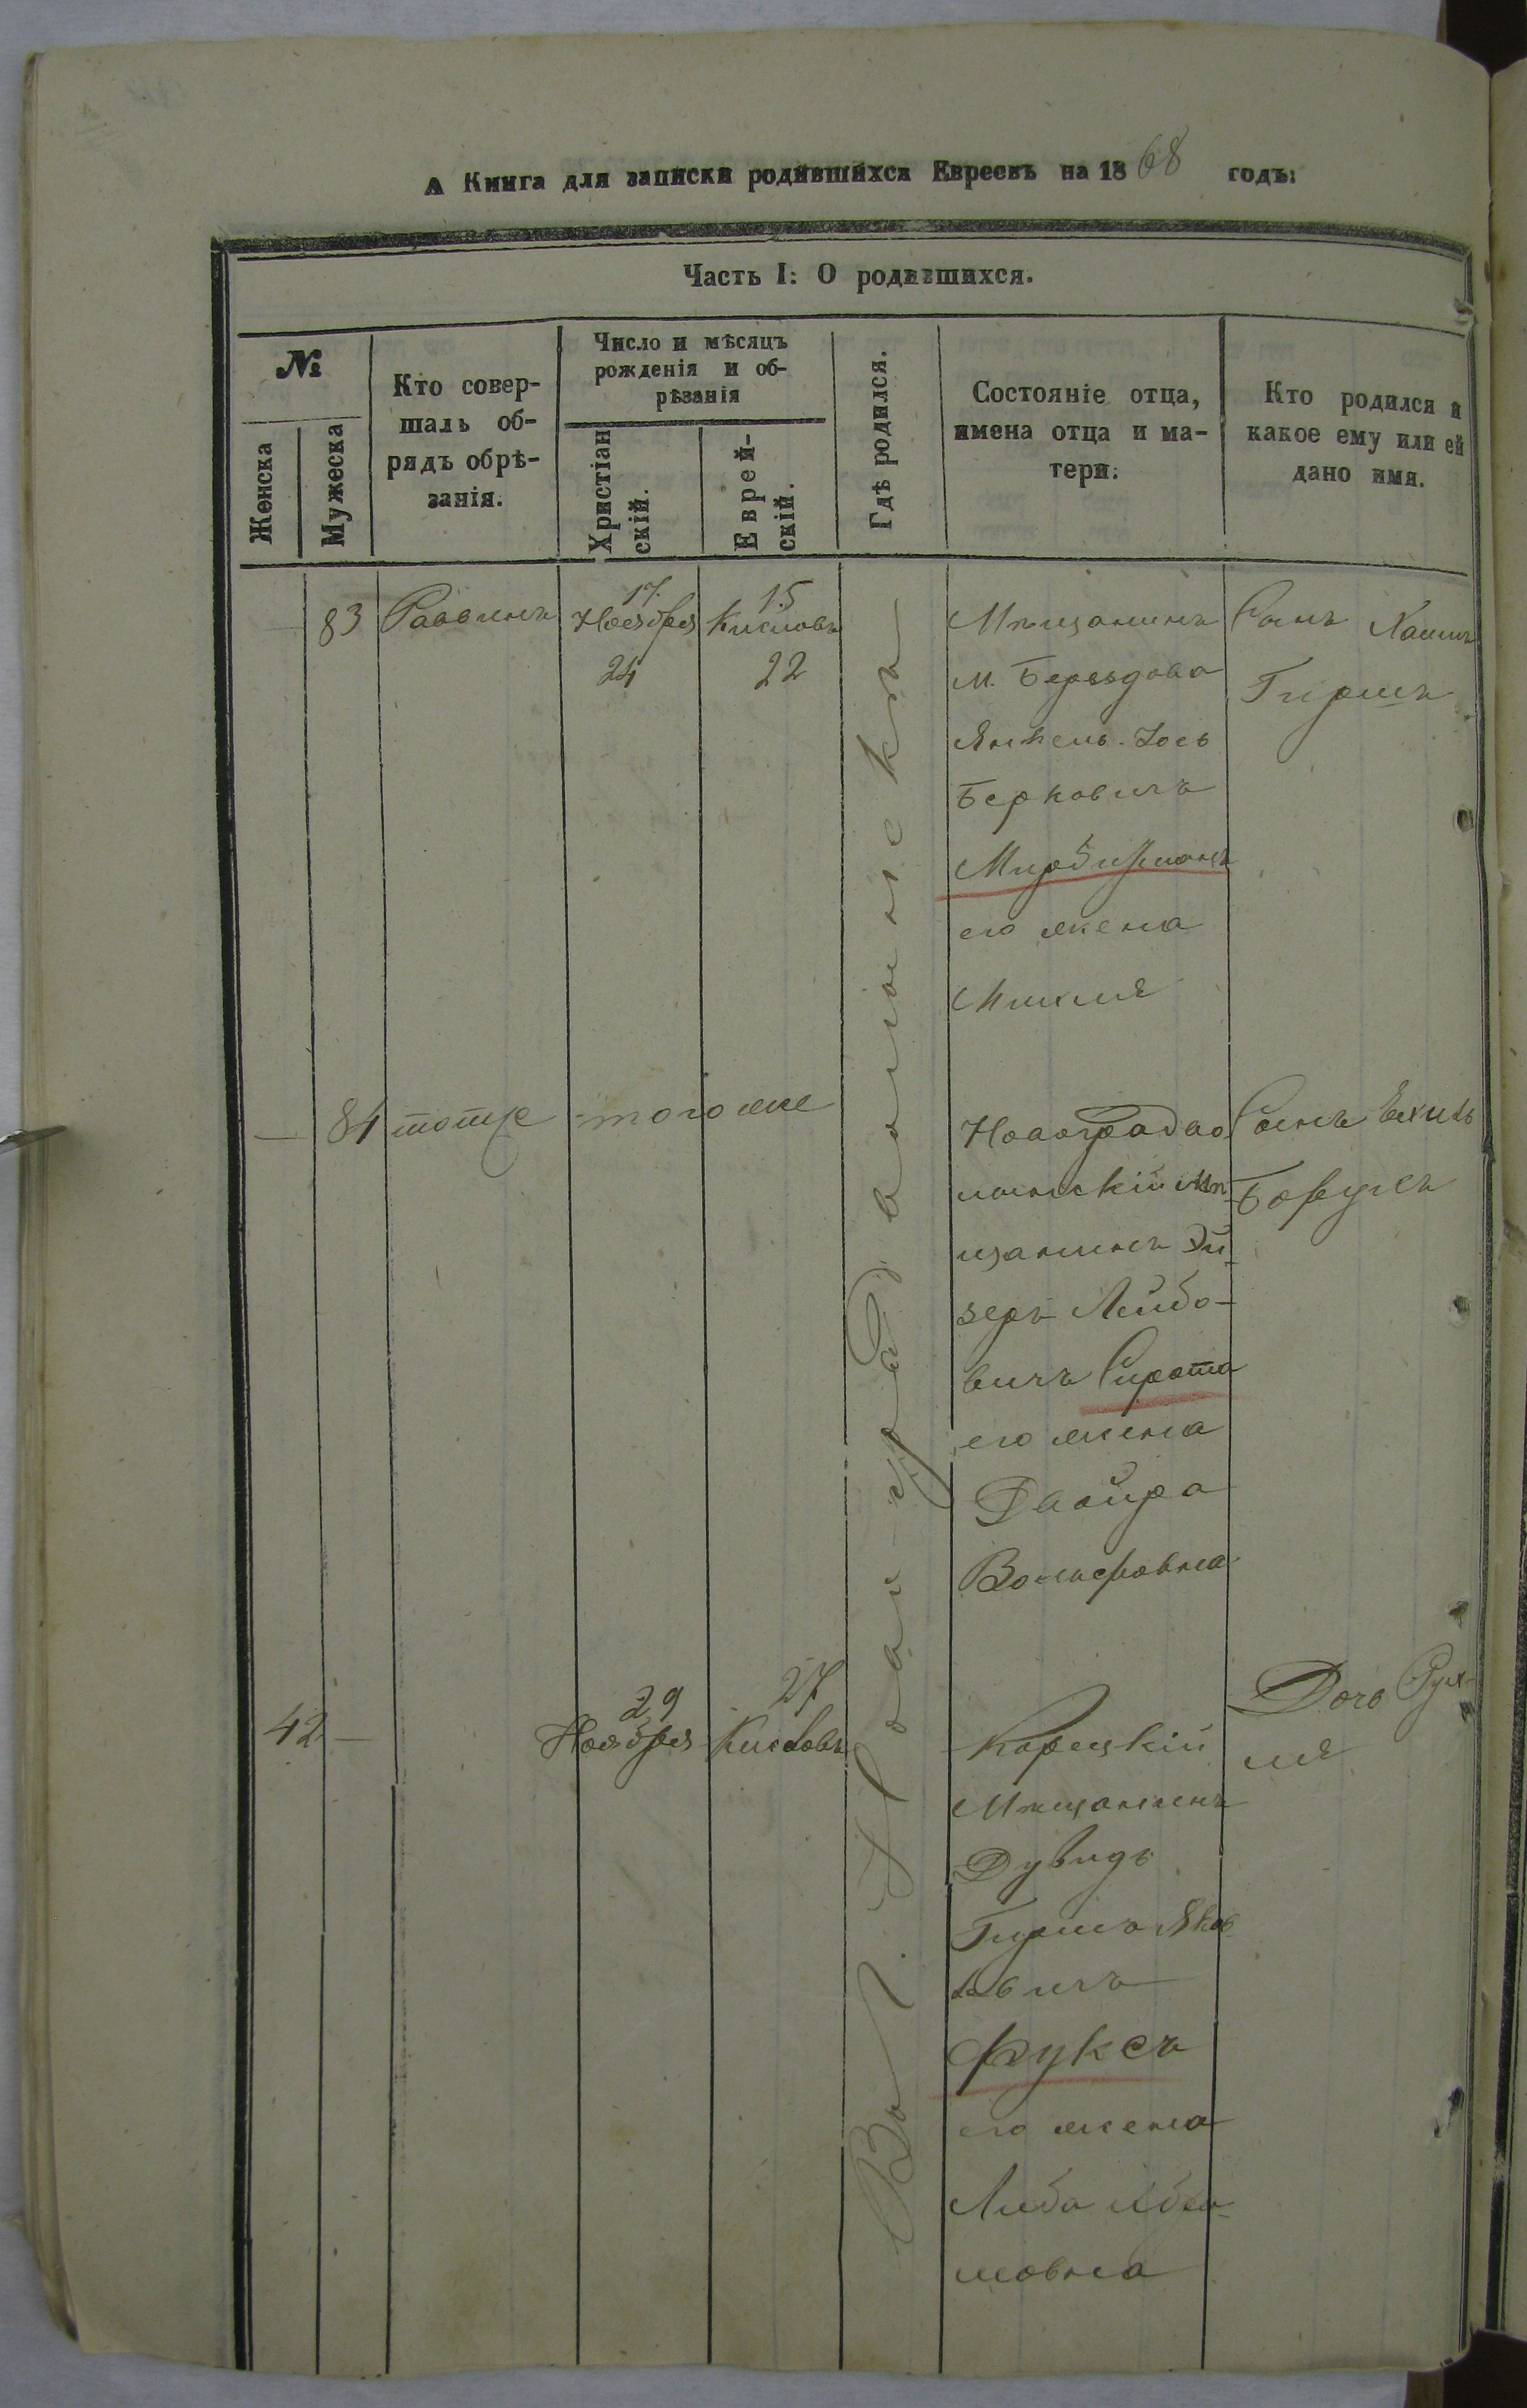 А Книга для записки родившихся Евреевъ на 1868 годъ:
Часть I: О родившихся.
№
Женска
Мужеска
Кто совер-
шалъ об-
рядъ обрѣ-
занія.
Число и мѣсяцъ
рожденія и об-
рѣзанія
Христіан
скій.
Еврей-
скій.
Гдѣ родился.
Состояніе отца,
имена отца и ма-
тери.
Кто родился и
какое ему или ей
дано имя.
Въ г. Новоградволынскъ
83 Раввинъ
17
Ноября
24
15
Кислова
22
Мѣщанинъ
м. Берездова
Янкель-Іось
Берковичъ
его жена
Сынъ Хаимъ
Гиршъ
84 тотже того же
Новоградво
лынскій Мѣ
щанинъ Эй-
зеръ Лейбо-
вичъ Сирота
его жена
Двойра
Вольфовна
Сынъ Ехиль
Борухъ
42 —
29
Ноября
27
Кислова
Корецкій
Мѣщанинъ
Дувидъ
Гиршъ Янке
левичъ
Фуксъ
его жена
Либа Абра-
мовна
Дочь Рух-
ля